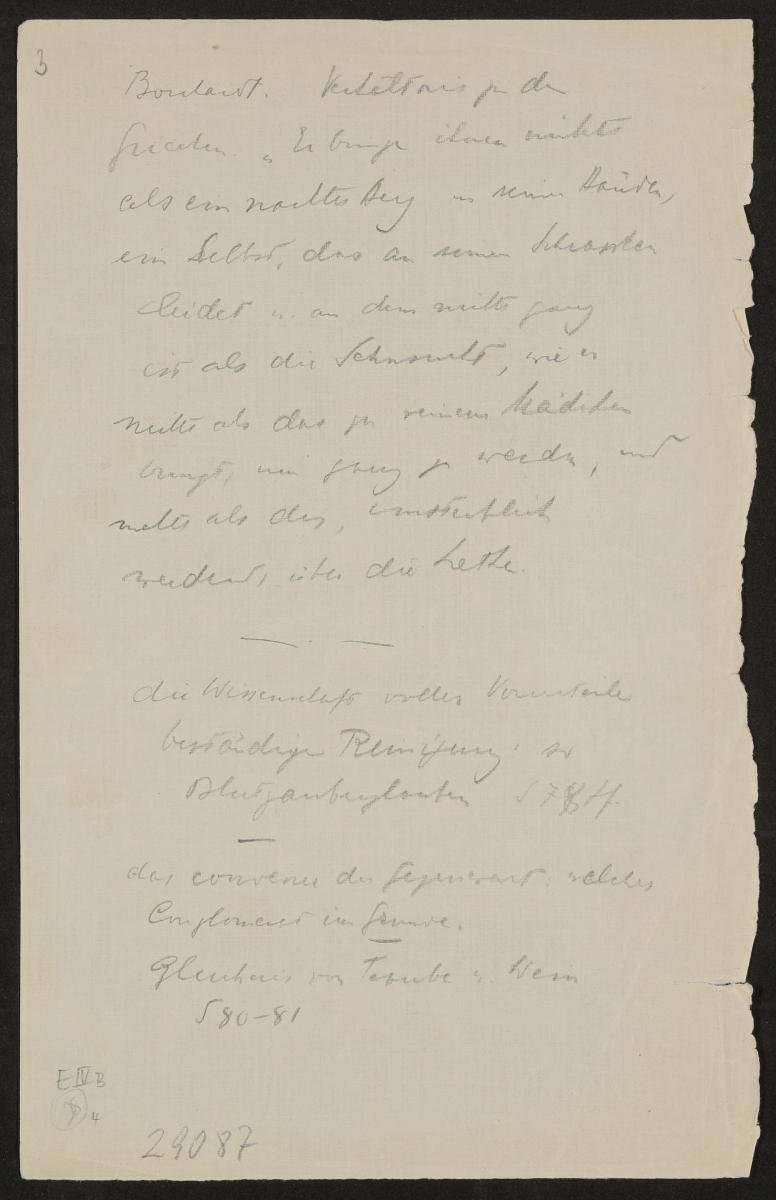 3
Borchardt. Verhältnis zu den
Griechen. „Er bringe ihnen nichts
als ein nacktes Herz in seinen Händen,
ein Selbst, das an seinen Schranken
leidet u. an dem nichts ganz
ist als die Sehnsucht, wie er
nichts als das zu seinem Mädchen
bringt, um ganz zu werden, und
nichts als das, unsterblich
werdend, über die Lethe.
die Wissenschaft voller Vorurteile
beständige Reinigung: so
Blutzauberglauben S 78 ff.
das der Gegenwart: welches
Conglomerat im Grunde.
Gleichnis von Traube u. Wein
S 80-81
E IV B
4
29087